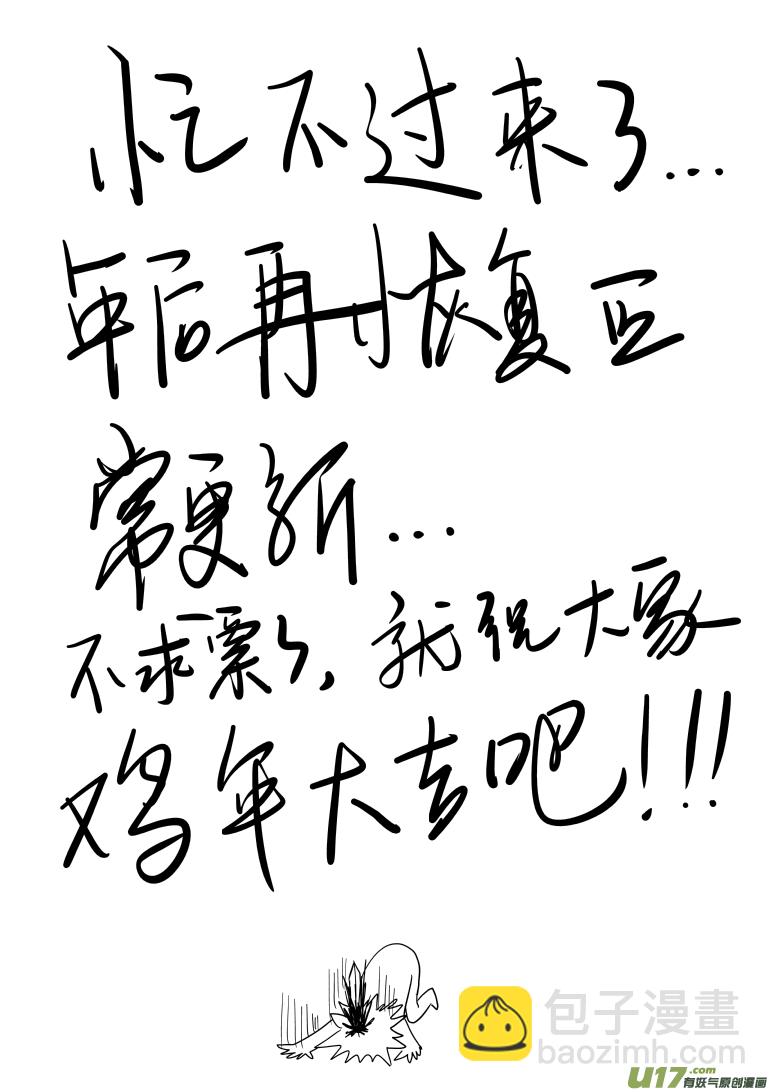 忙不过来了...
年后再恢复正
常更新...
不求票了,就祝大家
鸡年大吉吧!!!
包子漫畫
baozimh.com
U17.com
有妖气原创漫画